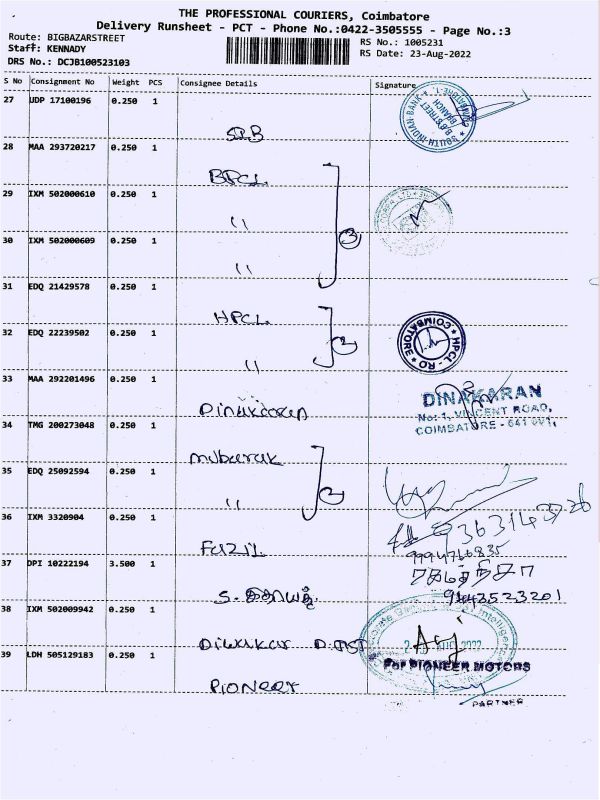 THE PROFESSIONAL COURIERS, Coimbatore
Delivery Runsheet - PCT - Phone No.:0422-3505555 - Page No.:3
Route: BIGBAZARSTREET
Staff: KENNADY
DRS No.: DCJB100523103
RS No.: 1005231
RS Date: 23-Aug-2022
S No Consignment No Weight PCS Consignee Details Signature
27 UDP 17100196 0.250 1
SIB
SOUTH INDIAN BANK
B.B STREET BRANCH
28 MAA 293720217 0.250 1
BPCL
29 IXM 502000610 0.250 1
"
3
30 IXM 502000609 0.250 1
"
31 EDQ 21429578 0.250 1
HPCL
2
32 EDQ 22239502 0.250 1
"
HPCL - RO
COIMBATORE
33 MAA 292201496 0.250 1
Dinakaran
DINAKARAN
No: 1, VINCENT ROAD,
COIMBATORE - 641 001,
34 TMG 200273048 0.250 1
Mubarak
35 EDQ 25092594 0.250 1
"
2
36 IXM 3320904 0.250 1
Fazil
9994766835
37 DPI 10222194 3.500 1
9143523201
38 IXM 502009942 0.250 1
Diwakar
39 LDH 505129183 0.250 1
Pioneer
For PIONEER MOTORS
PARTNER